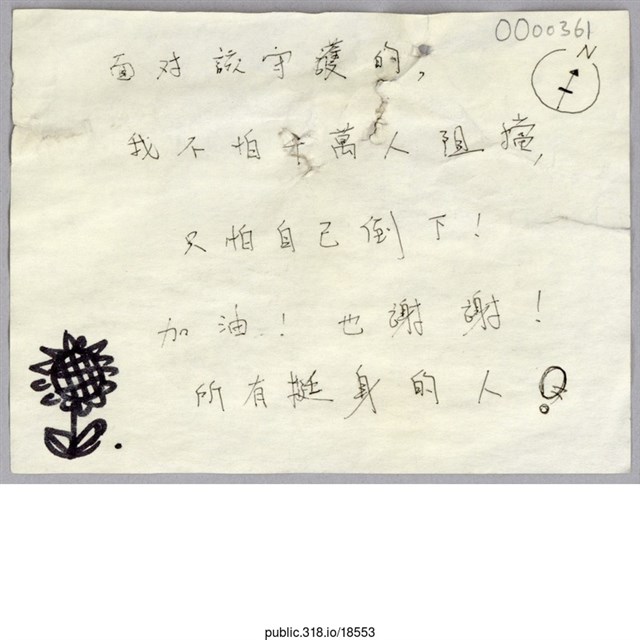 0000361
N
面对該守護的,
我不怕千萬人阻擋,
只怕自己倒下!
加油!也謝謝!
所有挺身的人
public.318.io/18553